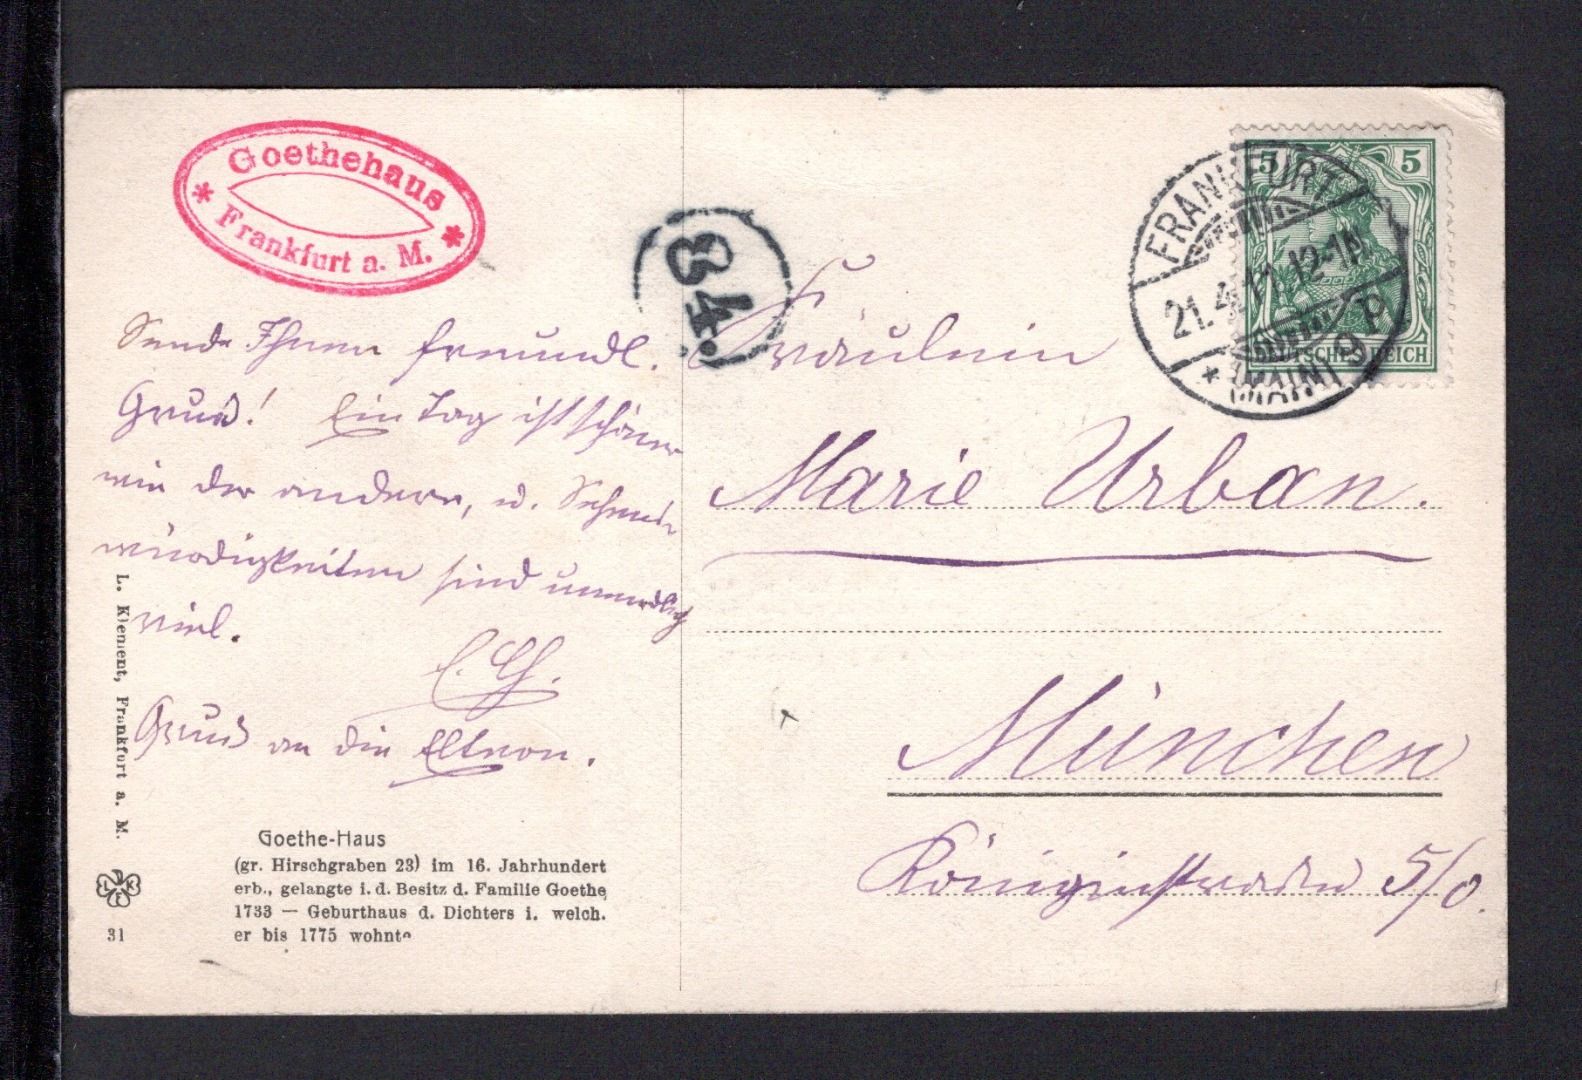 Goethehaus
* Frankfurt a. M. *
34.
FRANKFURT
21.4.11.12-1N
* (MAIN) 9 p
5 5
DEUTSCHES REICH
Sende Ihnen freundl.
Gruß! Ein Tag ist schöner
wie der andere, u. Sehens-
würdigkeiten sind unendlich
viel.
Gruß an die Eltern.
Fräulein
Marie Urban.
München
Königinstraße 5/0.
L. Klement, Frankfurt a. M.
Goethe-Haus
(gr. Hirschgraben 23) im 16. Jahrhundert
erb., gelangte i. d. Besitz d. Familie Goethe
1733 — Geburthaus d. Dichters i. welch.
er bis 1775 wohnte
L K
31